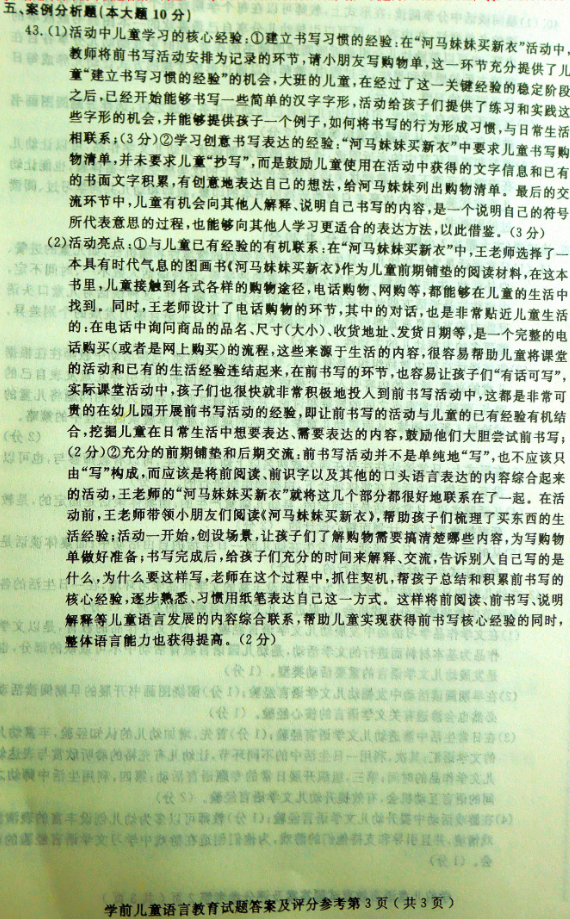 五、案例分析题(本大题 10 分)
43.(1)活动中儿童学习的核心经验:①建立书写习惯的经验:在“河马妹妹买新衣”活动中,
教师将前书写活动安排为记录的环节,请小朋友写购物单,这一环节充分提供了儿
童“建立书写习惯的经验”的机会,大班的儿童,在经过了这一关键经验的稳定阶段
之后,已经开始能够书写一些简单的汉字字形,活动给孩子们提供了练习和实践这
些字形的机会,并能够提供孩子一个例子,如何将书写的行为形成习惯,与日常生活
相联系;(3 分)②学习创意书写表达的经验:“河马妹妹买新衣”中要求儿童书写购
物清单,并未要求儿童“抄写”,而是鼓励儿童使用在活动中获得的文字信息和已有
的书面文字积累,有创意地表达自己的想法,给河马妹妹列出购物清单。最后的交
流环节中,儿童有机会向其他人解释、说明自己书写的内容,是一个说明自己的符号
所代表意思的过程,也能够向其他人学习更适合的表达方法,以此借鉴。(3 分)
(2)活动亮点:①与儿童已有经验的有机联系:在“河马妹妹买新衣”中,王老师选择了一
本具有时代气息的图画书《河马妹妹买新衣》作为儿童前期铺垫的阅读材料,在这本
书里,儿童接触到各式各样的购物途径,电话购物、网购等,都能够在儿童的生活中
找到。同时,王老师设计了电话购物的环节,其中的对话,也是非常贴近儿童生活
的;在电话中询问商品的品名、尺寸(大小)、收货地址、发货日期等,是一个完整的电
话购买(或者是网上购买)的流程,这些来源于生活的内容,很容易帮助儿童将课堂
的活动和已有的生活经验连结起来,在前书写的环节,也容易让孩子们“有话可写”,
实际课堂活动中,孩子们也很快就非常积极地投入到前书写活动中,这都是非常可
贵的在幼儿园开展前书写活动的经验,即让前书写的活动与儿童的已有经验有机结
合,挖掘儿童在日常生活中想要表达、需要表达的内容,鼓励他们大胆尝试前书写;
(2 分)②充分的前期铺垫和后期交流:前书写活动并不是单纯地“写”,也不应该只
由“写”构成,而应该是将前阅读、前识字以及其他的口头语言表达的内容综合起来
的活动,王老师的“河马妹妹买新衣”就将这几个部分都很好地联系在了一起。在活
动前,王老师带领小朋友们阅读《河马妹妹买新衣》,帮助孩子们梳理了买东西的生
活经验;活动一开始,创设场景,让孩子们了解购物需要搞清楚哪些内容,为写购物
单做好准备;书写完成后,给孩子们充分的时间来解释、交流,告诉别人自己写的是
什么,为什么要这样写,老师在这个过程中,抓住契机,帮孩子总结和积累前书写的
核心经验,逐步熟悉、习惯用纸笔表达自己这一方式。这样将前阅读、前书写、说明
解释等儿童语言发展的内容综合联系,帮助儿童实现获得前书写核心经验的同时,
整体语言能力也获得提高。(2 分)
学前儿童语言教育试题答案及评分参考第 3 页(共 3 页)